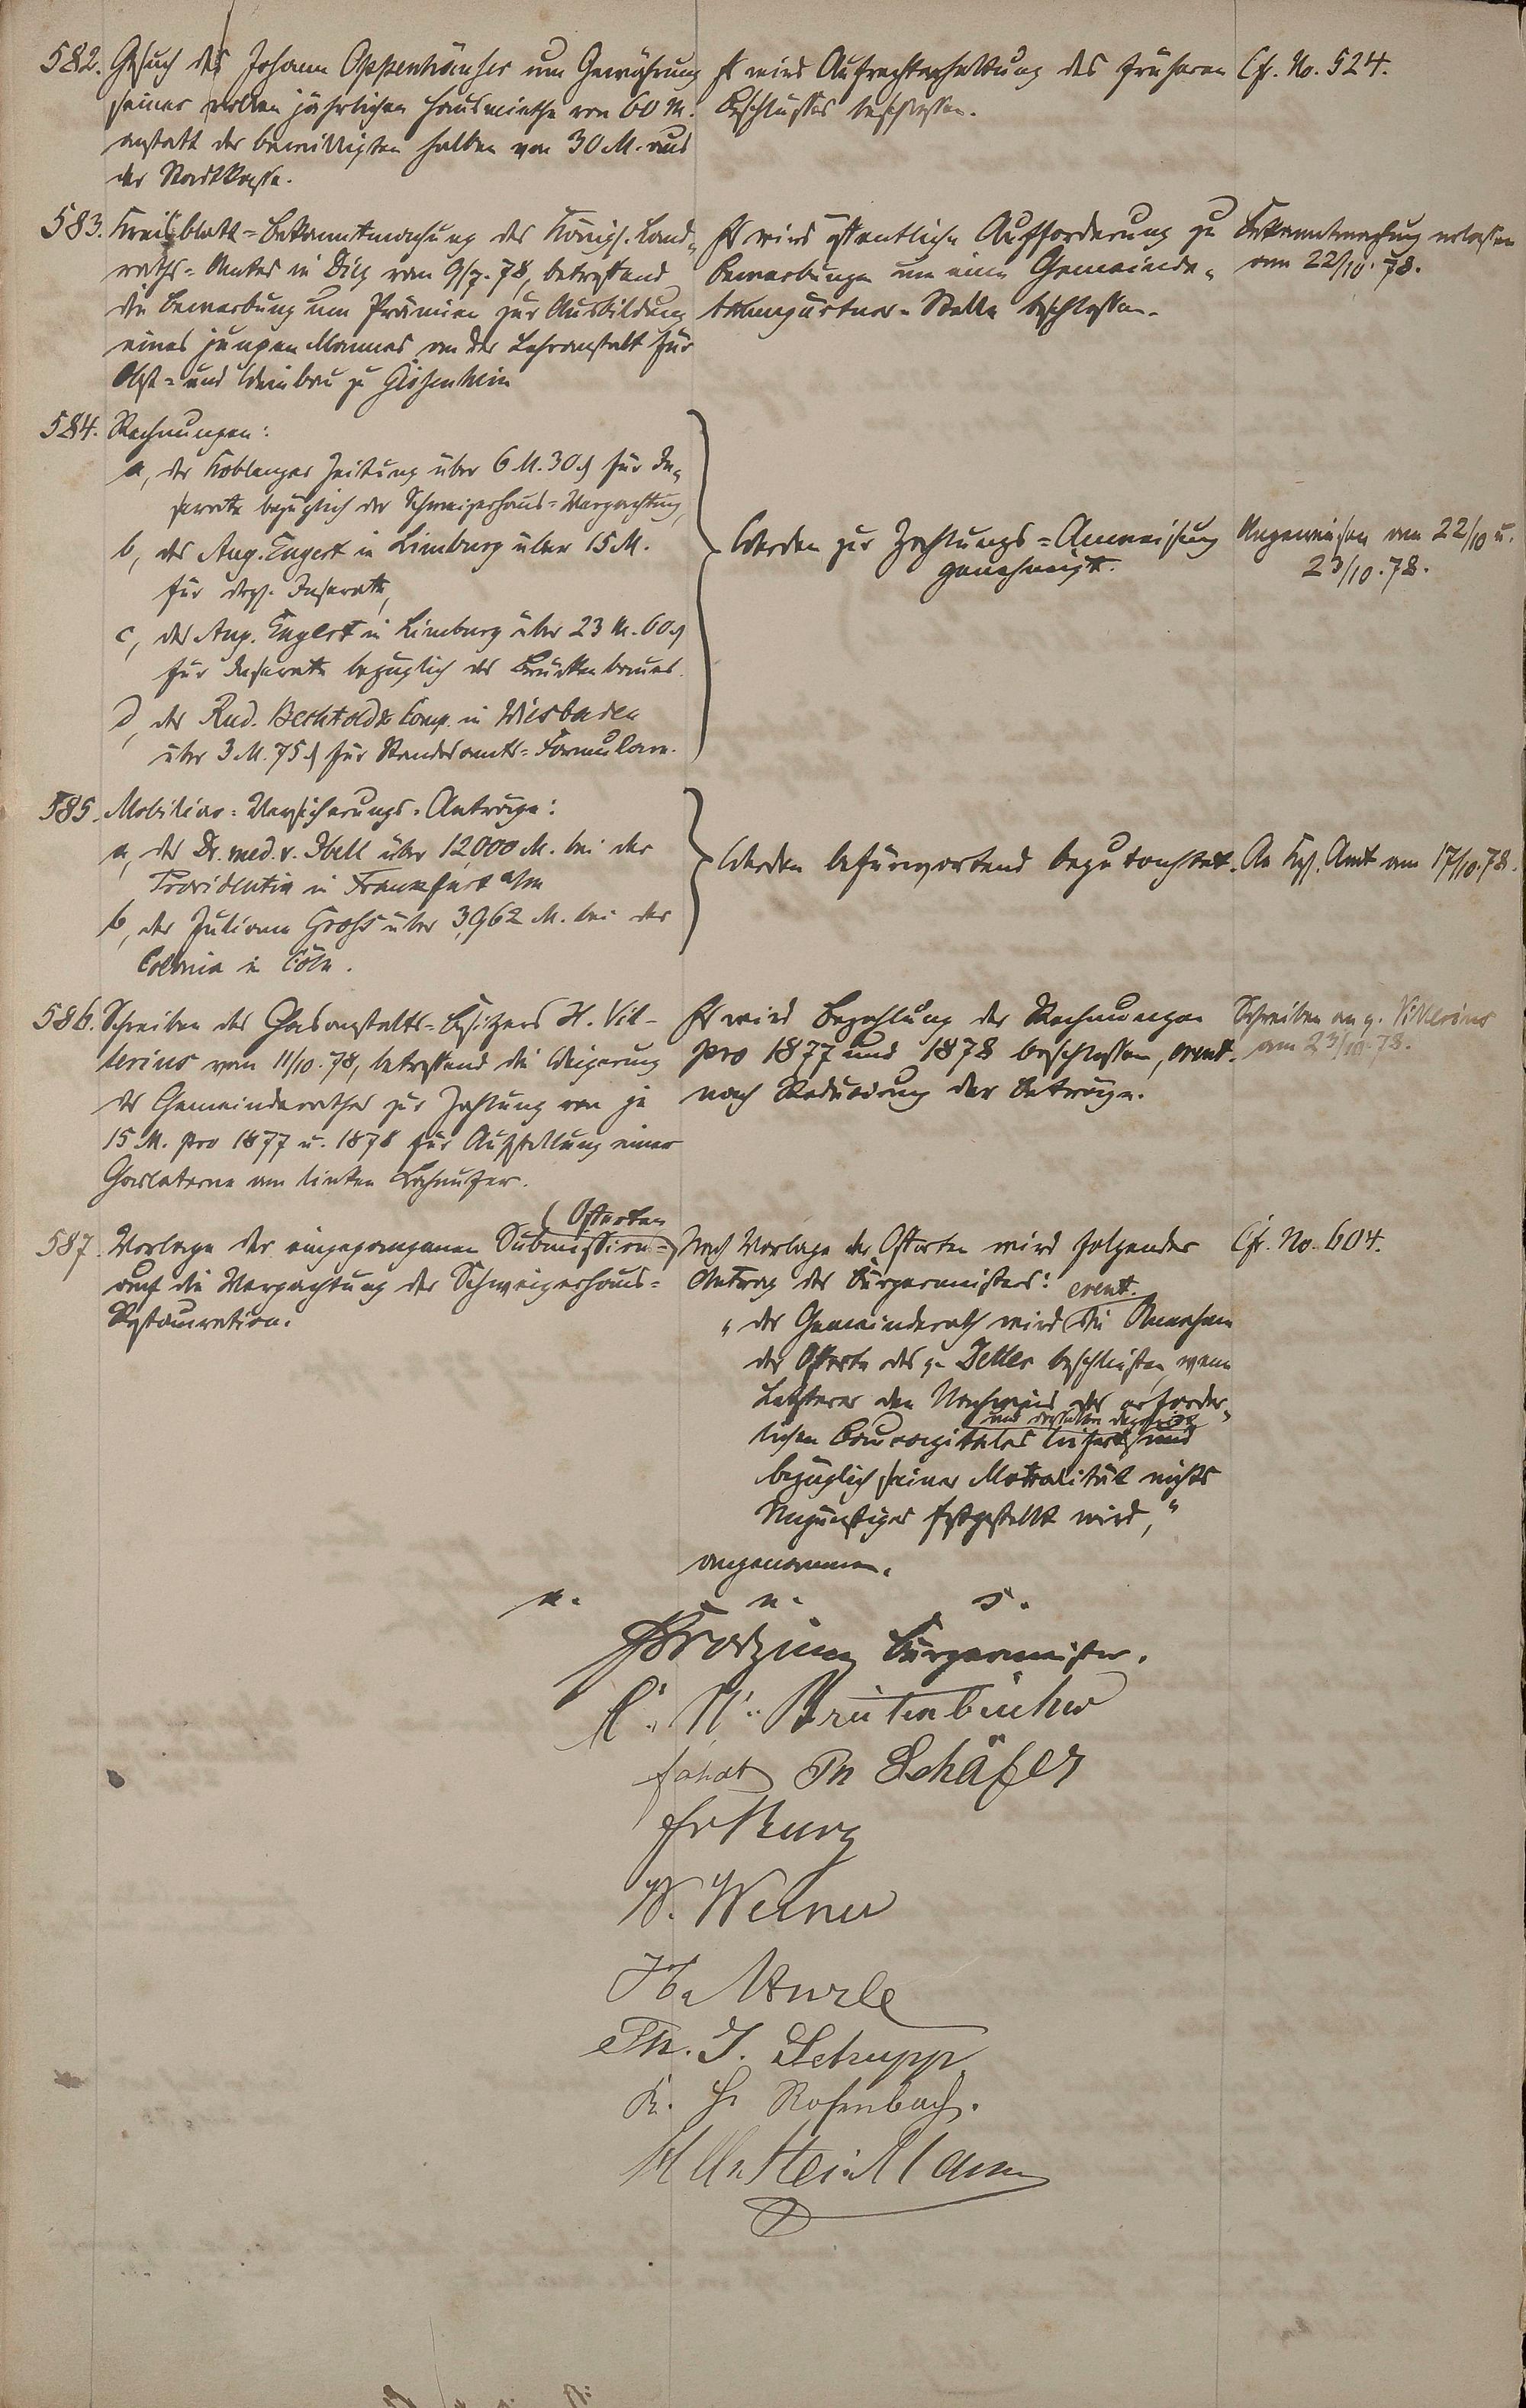 582. Gesuch des Johann Oppenhäuser um Gewährung
seiner vollen jährlichen Hausmiethe von 60 M.
anstatt der bewilligten halben von 30 M. aus
der Stadtkasse.
Es wird Aufrechterhaltung des früheren
Beschlusses beschlossen.
Cfr. No. 524.
583. Kreisblatt-Bekanntmachung des Königl. Land-
raths-Amtes in Diez vom 9/7.78, betreffend
die Bewerbung um Prämien zur Ausbildung
eines jungen Mannes an der Lehranstalt für
Obst- und Weinbau zu Geisenheim
Es wird öffentliche Aufforderung zu
Bewerbungen um eine Gemeinde-
baumgärtner-Stelle beschlossen.
Bekanntmachung erlassen
am 22/10.78.
584. Rechnungen:
a, der Koblenzer Zeitung über 6 M. 30 ₰ für In-
serate bezüglich der Schweizerhaus-Verpachtung,
b, des Aug. Engert in Limburg über 15 M.
für dergl. Inserate,
c, des Aug. Engert in Limburg über 23 M. 60 ₰
für Inserate bezüglich des Brückenbaues.
d, der Rud. Bechtold & Comp. in Wiesbaden
über 3 M. 75 ₰ für Standesamts-Formulare.
Werden zur Zahlungs-Anweisung
genehmigt.
Angewiesen am 22/10 u.
23/10.78.
585. Mobiliar-Versicherungs-Anträge:
a, des Dr. med. v. Ibell über 12000 M. bei der
Providentia in Frankfurt a/m
b, der Juliane Groß über 3,962 M. bei der
Colonia in Cöln.
Werden befürwortend begutachtet.
An Kgl. Amt am 17/10.78.
586. Schreiben des Gasanstalts-Besitzers H. Vit-
terius vom 11/10.78, betreffend die Weigerung
des Gemeinderathes zur Zahlung von je
15 M. pro 1877 u. 1878 für Aufstellung einer
Gaslaterne am linken Lahnufer.
Es wird Bezahlung der Rechnungen
pro 1877 und 1878 beschlossen, event.
nach Reducirung der Beträge.
Schreiben an H. Vitterius
am 23/10.78.
587. Vorlage der eingegangenen Submissions-
Offerten
auf die Verpachtung der Schweizerhaus-
Restauration.
Nach Vorlage der Offerten wird folgender
Antrag des Bürgermeisters:
event.
„der Gemeinderath wird die Annahme
der Offerte des H. Detler beschließen, wenn
Letzterer den Nachweis des erforder-
lichen Baucapitales liefert und
bezüglich seiner Moralität nichts
Ungünstiges festgestellt wird,“
angenommen.
v. u. s.
Bürgermeister.
Th Schäfer
Fr Burg
W. Werner
Th. J. Schupp
K. H. Rosenbach.